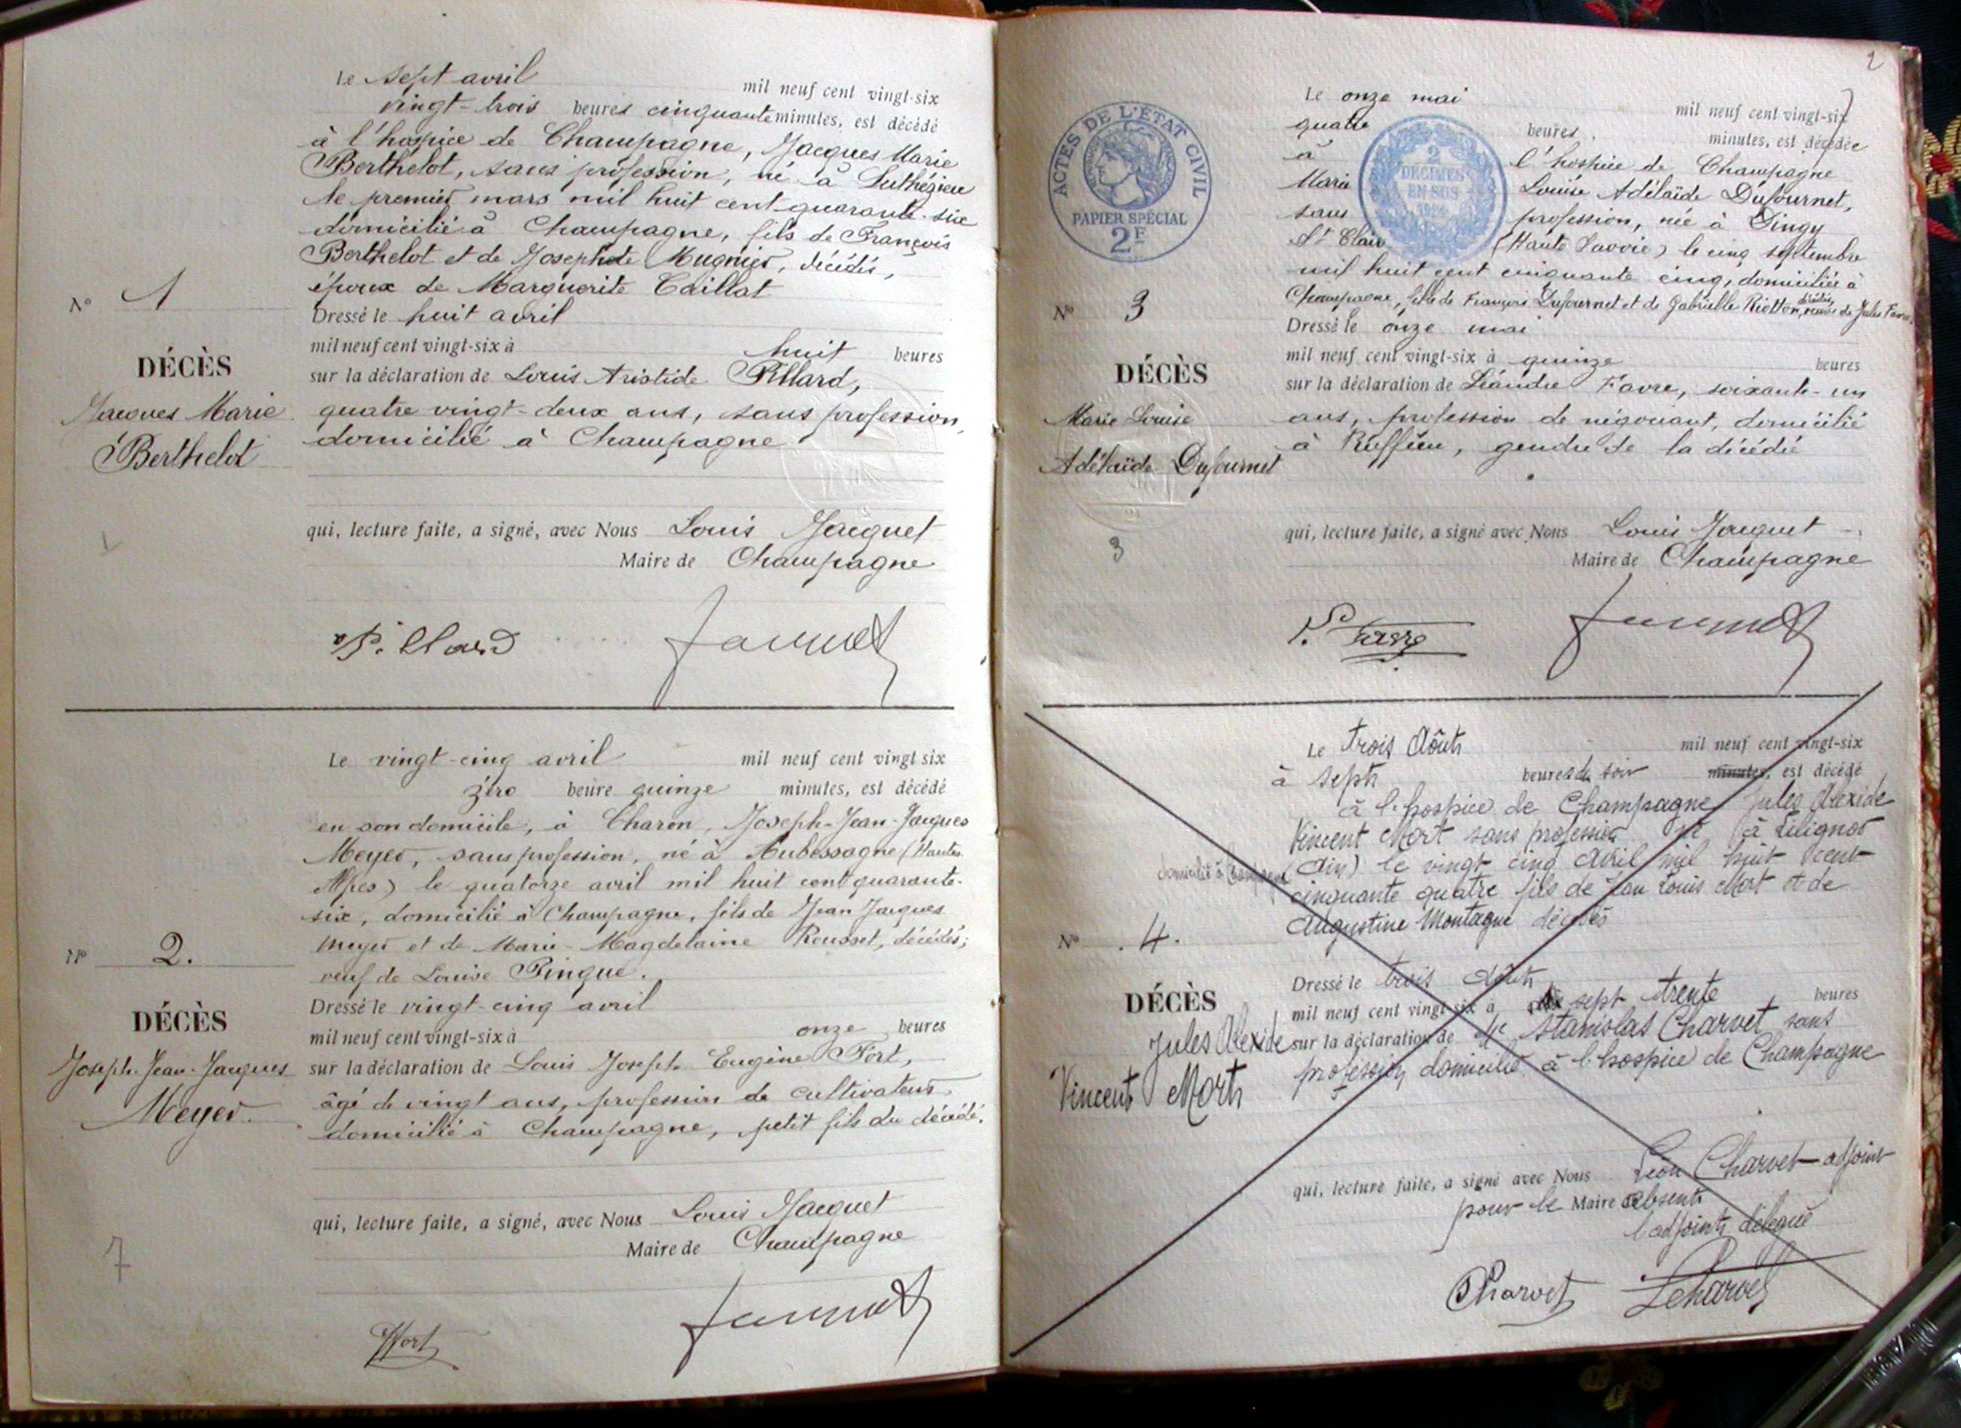 Le sept avril mil neuf cent vingt-six
vingt-trois heures cinquante minutes, est décédé
à l'hospice de Champagne, Jacques Marie
Berthelot, sans profession, né à Luthézieu
le premier mars mil huit cent quarante-six
domicilié à Champagne, fils de François
Berthelot et de Josephte Mugnier, décédés,
époux de Marguerite Caillat
Nº 1
Dressé le huit avril
mil neuf cent vingt-six à huit heures
DÉCÈS
sur la déclaration de Louis Aristide Pillard,
Jacques Marie
quatre vingt-deux ans, sans profession,
Berthelot
domicilié à Champagne
qui, lecture faite, a signé, avec Nous Louis Jacquet
Maire de Champagne
Pillard Jacquet
Le vingt-cinq avril mil neuf cent vingt six
zéro heure quinze minutes, est décédé
en son domicile, à Charon, Joseph-Jean-Jacques
Meyer, sans profession, né à Aubessagne (Hautes
Alpes) le quatorze avril mil huit cent quarante-
six, domicilié à Champagne, fils de Jean Jacques
Meyer et de Marie-Magdelaine Rousset, décédés;
Nº 2.
veuf de Louise Pingue.
Dressé le vingt-cinq avril
DÉCÈS
mil neuf cent vingt-six à onze heures
Joseph-Jean-Jacques
sur la déclaration de Louis Joseph Eugène Fort,
Meyer.
âgé de vingt ans, profession de cultivateur
domicilié à Champagne, petit fils du décédé.
qui, lecture faite, a signé, avec Nous Louis Jacquet
Maire de Champagne
7
Fort Jacquet
2
ACTES DE L'ÉTAT CIVIL
PAPIER SPÉCIAL
2F
2
DÉCIMES
EN SUS
Le onze mai mil neuf cent vingt-six
quatre heures minutes, est décédée
à l'hospice de Champagne
Marie Louise Adélaïde Dufournet,
sans profession, née à Dingy
St Clair (Haute Savoie) le cinq septembre
mil huit cent cinquante cinq, domiciliée à
Champagne, fille de François Dufournet et de Gabrielle Riotton, décédés, veuve de Jules Favre.
Nº 3
Dressé le onze mai
mil neuf cent vingt-six à quinze heures
DÉCÈS
sur la déclaration de Léandre Favre, soixante-un
Marie Louise
ans, profession de négociant, domicilié
Adélaïde Dufournet
à Ruffieu, gendre de la décédé
qui, lecture faite, a signé avec Nous Louis Jacquet
3
Maire de Champagne
L. Favre Jacquet
Le trois Août mil neuf cent vingt-six
à sept heures du soir minutes, est décédé
à l'hospice de Champagne Jules Alexide
Vincent Mort sans profession né à Lilignod
(Ain) le vingt cinq Avril mil huit cent
domicilié à Champagne
cinquante quatre fils de Jean Louis Mort et de
Augustine Montagne décédés
Nº 4.
Dressé le trois Août
DÉCÈS
mil neuf cent vingt-six à sept trente heures
Jules Alexide
sur la déclaration de Mr Stanislas Charvet sans
Vincent Mort
profession domicilié à l'hospice de Champagne
qui, lecture faite, a signé avec Nous Léon Charvet adjoint
pour le Maire absent
l'adjoint délégué
Charvet LCharvet